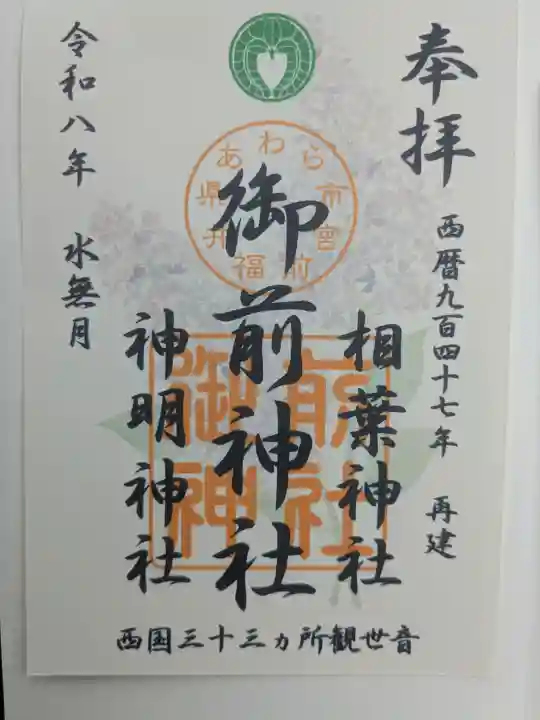 奉拝
西暦九百四十七年 再建
相葉神社
御前神社
神明神社
令和八年 水無月
福井県あわら市宮前
御前神社
西国三十三ヵ所観世音